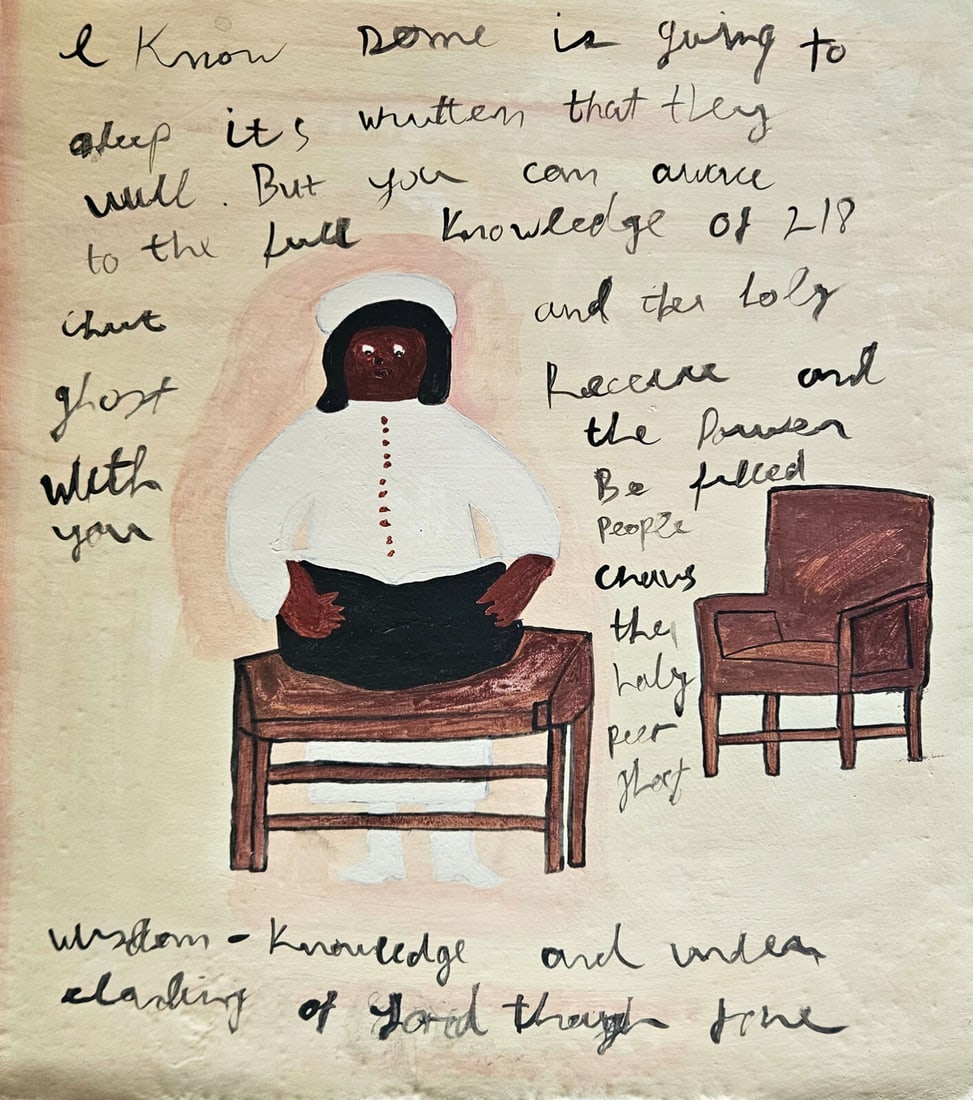 I Know some is going to
sleep it's written that they
will. But you can awake
to the full Knowledge of 218
and the holy
ghost
Receive and
with
the Power
you
Be filled
People
the
holy
ghost
wisdom - Knowledge and under
of Lord though